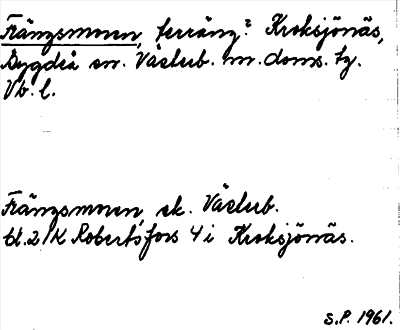 Frängsmoren, terräng? Kroksjönäs,
Bygdeå sn. Västerb. m. doms. tg.
Vb. l.
Frängsmoren, ek. Västerb.
bl. 21K Robertsfors 4 i Kroksjönäs.
S.P. 1961.